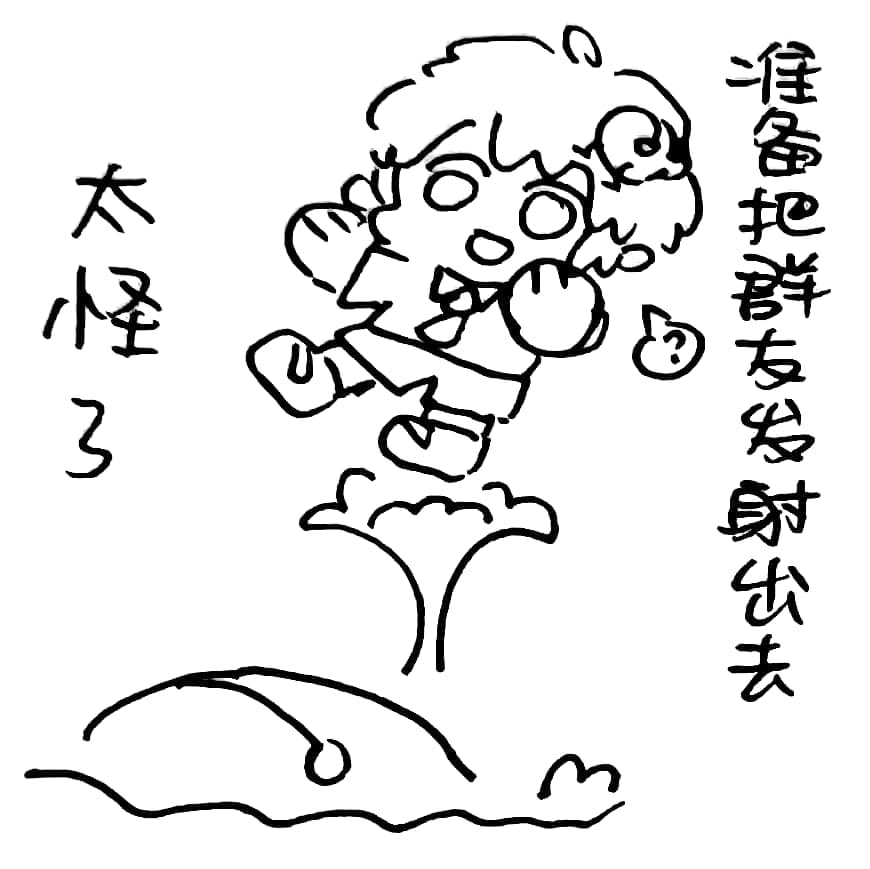 准备把群友发射出去
?
太怪了